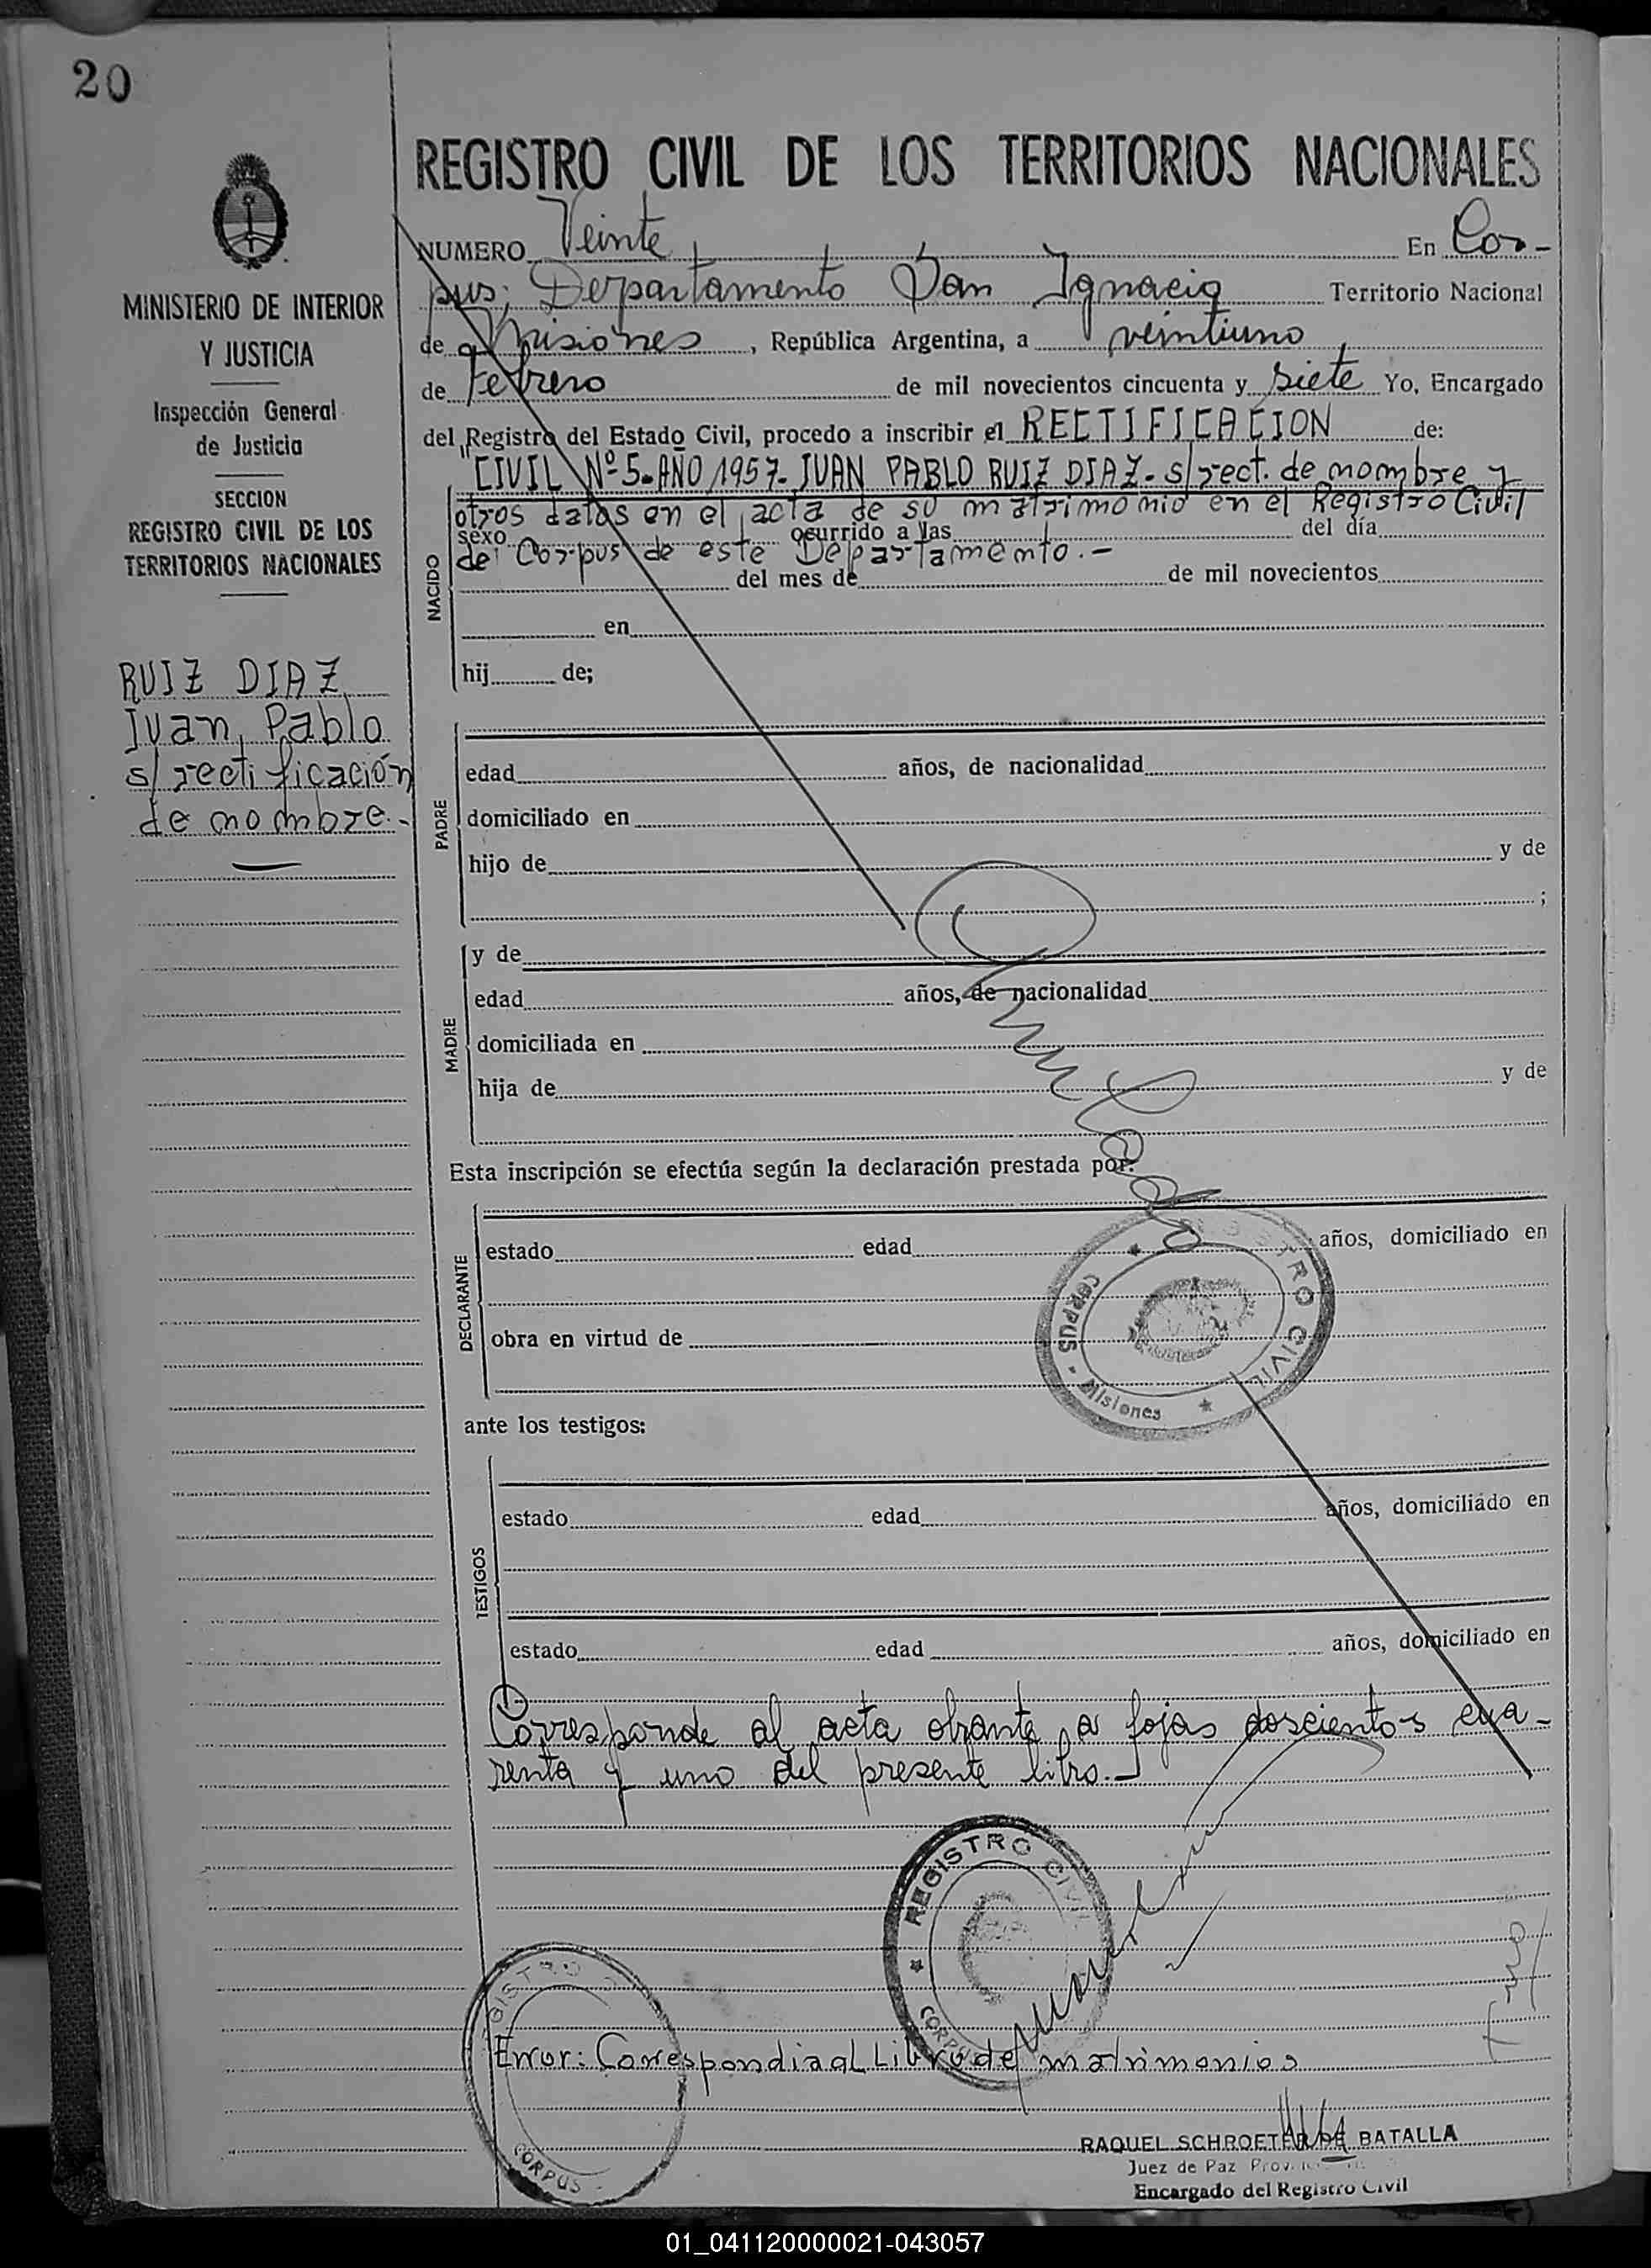 20
REGISTRO CIVIL DE LOS TERRITORIOS NACIONALES
MINISTERIO DE INTERIOR
Y JUSTICIA
Inspección General
de Justicia
SECCION
REGISTRO CIVIL DE LOS
TERRITORIOS NACIONALES
RUIZ DIAZ
Juan Pablo
s/rectificación
de nombre.-
NUMERO Veinte En Cor-
pus; Departamento San Ignacio Territorio Nacional
de Misiones, República Argentina, a veintiuno
de Febrero de mil novecientos cincuenta y siete Yo, Encargado
del Registro del Estado Civil, procedo a inscribir el RECTIFICACION de:
CIVIL Nº 5-AÑO 1957- JUAN PABLO RUIZ DIAZ- s/rect. de nombre y
otros datos en el acta de su matrimonio en el Registro Civil
sexo ocurrido a las del día
de Corpus de este Departamento.-
NACIDO
del mes de de mil novecientos
en
hij de;
PADRE
edad años, de nacionalidad
domiciliado en
hijo de y de
;
MADRE
y de
edad años, de nacionalidad
domiciliada en
hija de y de
Esta inscripción se efectúa según la declaración prestada por:
DECLARANTE
estado edad años, domiciliado en
obra en virtud de
REGISTRO CIVIL
CORPUS - Misiones
ante los testigos:
TESTIGOS
estado edad años, domiciliado en
estado edad años, domiciliado en
Corresponde al acta obrante a fojas doscientos cua-
renta y uno del presente libro.-
REGISTRO CIVIL
CORPUS
REGISTRO
CORPUS
Error: Correspondia al Libro de matrimonios
RAQUEL SCHROETER DE BATALLA
Juez de Paz
Encargado del Registro Civil
01_041120000021-043057